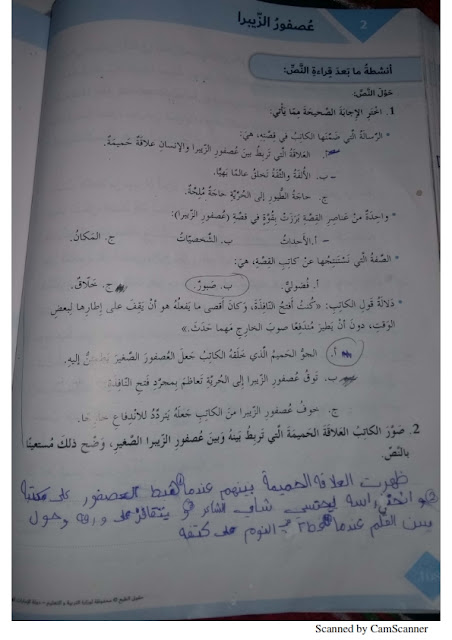 2
عُصفورُ الزّيبرا
أنشطةُ ما بَعدَ قِراءةِ النَّصِّ:
حَوْلَ النَّصِّ:
1. اخْتَرِ الإجابَةَ الصَّحيحَةَ مِمّا يَأْتي:
* الرِّسالَةُ الَّتي ضَمَّنَها الكاتِبُ في قِصَّتِهِ، هِيَ:
أ. العَلاقَةُ الَّتي تَربِطُ بَينَ عُصفورِ الزّيبرا والإنسانِ عَلاقَةٌ حَميمَةٌ.
ب. الأُلفَةُ والثِّقَةُ تَخلُقُ عالَمًا بَهِيًّا.
ج. حاجَةُ الطُّيورِ إلى الحُرِّيَّةِ حاجَةٌ مُلِحَّةٌ.
* واحِدَةٌ مَنْ عَناصِرِ القِصَّةِ بَرَزَتْ بِقُوَّةٍ في قِصَّةِ (عُصفورِ الزّيبرا):
أ. الأحداثُ ب. الشَّخصِيّاتُ ج. المَكانُ.
* الصِّفَةُ الَّتي تَسْتَنتِجُها عَنْ كاتِبِ القِصَّةِ، هِيَ:
أ. فُضولِيٌّ. ب. صَبورٌ. ج. خَلّاقٌ.
* دَلالَةُ قَولِ الكاتِبِ: «كُنْتُ أفتَحُ النّافِذَةَ، وَكانَ أقصى ما يَفعَلُهُ هو أنْ يَقِفَ على إطارِها لِبَعضِ
الوَقتِ، دونَ أنْ يَطيرَ مُندَفِعًا صوبَ الخارِجِ مَهما حَدَثَ.»
أ. الجوُّ الحَميمُ الَّذي خَلَقَهُ الكاتِبُ جَعلَ العُصفورَ الصَّغيرَ يَطمَئِنُّ إليهِ.
ب. تَوقُ عُصفورِ الزّيبرا إلى الحُرِّيَّةِ تَعاظَمَ بِمجرَّدِ فَتحِ النّافِذَةِ
ج. خوفُ عُصفورِ الزّيبرا مِنَ الكاتِبِ جَعَلَهُ يَتردَّدُ للاندِفاعِ خارِجًا
2. صَوَّرَ الكاتبُ العَلاقَةَ الحَميمَةَ الَّتي تَربِطُ بَينَهُ وَبينَ عُصفورِ الزّيبرا الصَّغيرِ، وَضِّح ذلكَ مُستَعينًا
بالنَّصِّ.
ظهرت العلاقة الحميمة بينهم عندما هبط العصفور على مكتبة
و انحنى راسه ليحتسي شاي الشاعر و يتقافز على ورقه وحول
سن القلم عندما النوم على كتفه
Scanned by CamScanner